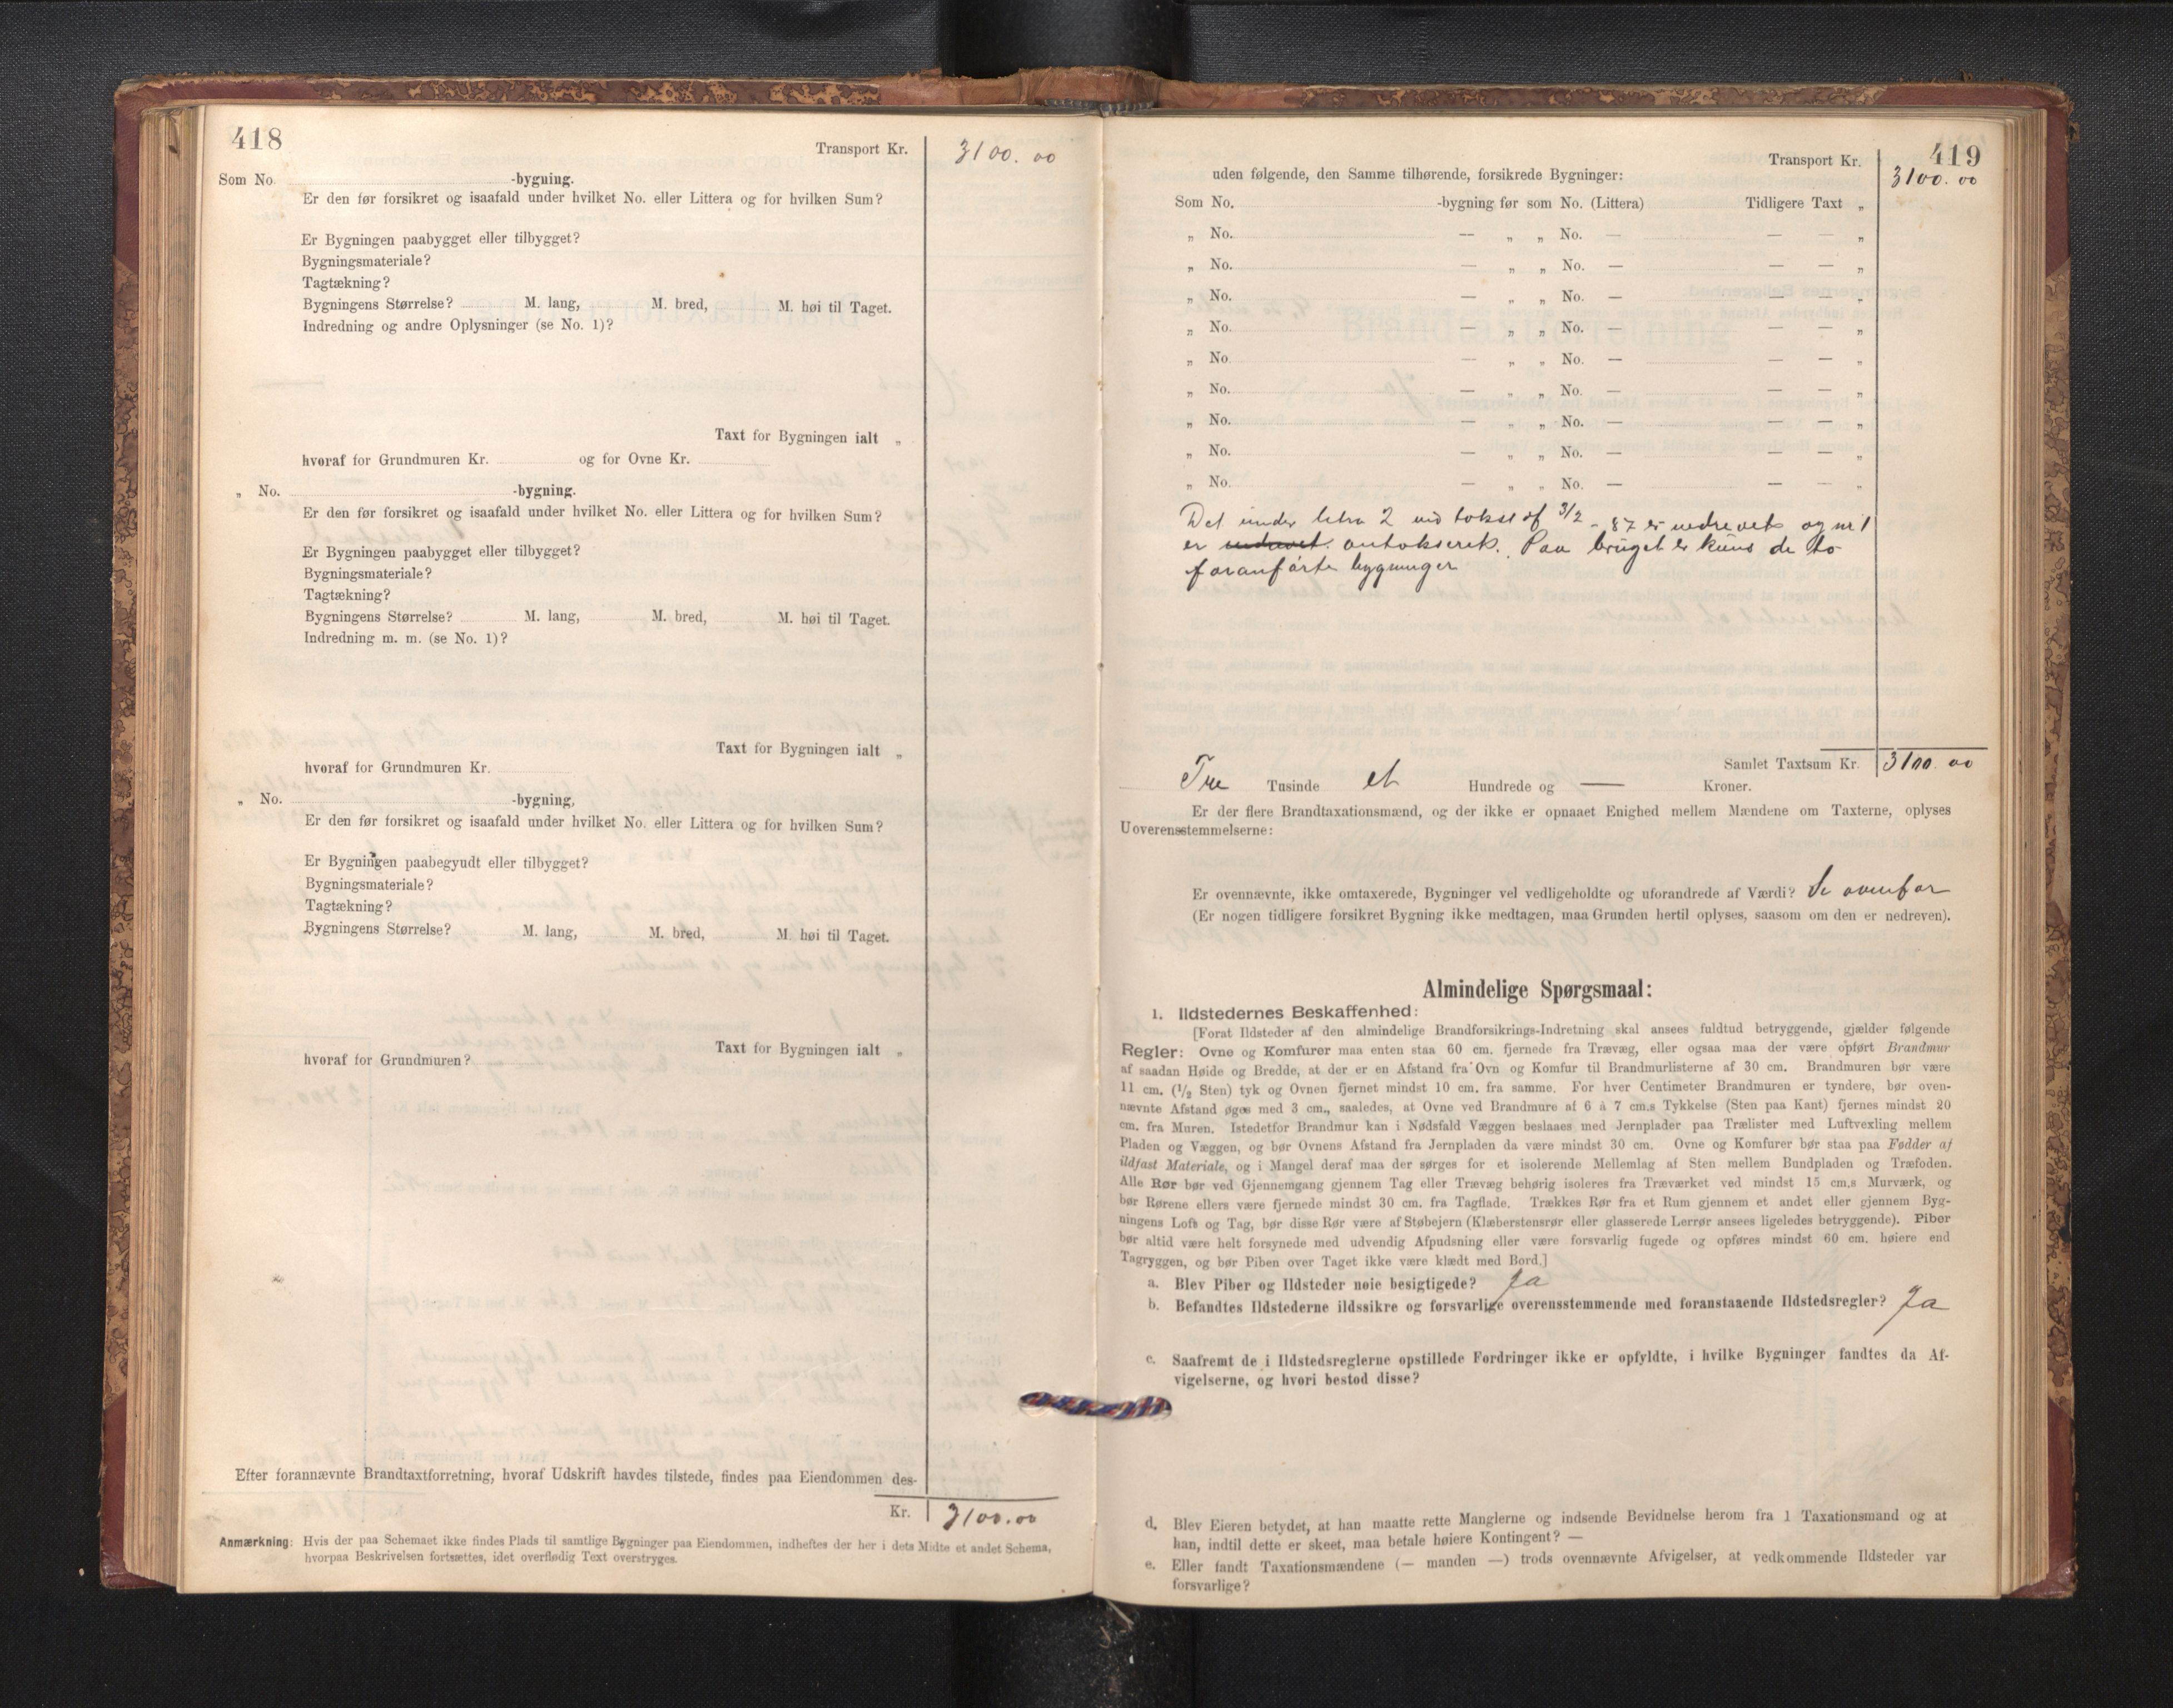 418
Transport Kr. 3100.00
Som No. -bygning.
Er den før forsikret og isaafald under hvilket No. eller Littera og for hvilken Sum?
Er Bygningen paabygget eller tilbygget?
Bygningsmateriale?
Tagtækning?
Bygningens Størrelse? M. lang, M. bred, M. høi til Taget.
Indredning og andre Oplysninger (se No. 1)?
Taxt for Bygningen ialt „
hvoraf for Grundmuren Kr. og for Ovne Kr.
„ No. -bygning.
Er den før forsikret og isaafald under hvilket No. eller Littera og for hvilken Sum?
Er Bygningen paabygget eller tilbygget?
Bygningsmateriale?
Tagtækning?
Bygningens Størrelse? M. lang, M. bred, M. høi til Taget.
Indredning m. m. (se No. 1)?
Taxt for Bygningen ialt „
hvoraf for Grundmuren Kr.
„ No. -bygning,
Er den før forsikret og isaafald under hvilket No. eller Littera og for hvilken Sum?
Er Bygningen paabegyndt eller tilbygget?
Bygningsmateriale?
Tagtækning?
Bygningens Størrelse? M. lang, M. bred, M. høi til Taget.
Taxt for Bygningen ialt „
hvoraf for Grundmuren?
Efter forannævnte Brandtaxtforretning, hvoraf Udskrift havdes tilstede, findes paa Eiendommen des-
Kr. 3100.00
Anmærkning: Hvis der paa Schemaet ikke findes Plads til samtlige Bygninger paa Eiendommen, indheftes der her i dets Midte et andet Schema,
hvorpaa Beskrivelsen fortsættes, idet overflødig Text overstryges.
419
Transport Kr. 3100.00
uden følgende, den Samme tilhørende, forsikrede Bygninger:
Som No. -bygning før som No. (Littera) Tidligere Taxt „
„ No. — „ „ No. — — — „
„ No. — „ „ No. — — — „
„ No. — „ „ No. — — — „
„ No. — „ „ No. — — — „
„ No. — „ „ No. — — — „
„ No. — „ „ No. — — — „
„ No. — „ „ No. — — — „
„ No. — „ „ No. — — — „
„ No. — „ „ No. — — — „
Det under litra 2 ved takst af 3/2 - 87 er nedrevet og nr 1
er omtakseret. Paa bruget er kuns de to
foranførte bygninger
Samlet Taxtsum Kr. 3100.00
Tre Tusinde et Hundrede og — Kroner.
Er der flere Brandtaxationsmænd, og der ikke er opnaaet Enighed mellem Mændene om Taxterne, oplyses
Uoverensstemmelserne:
Er ovennævnte, ikke omtaxerede, Bygninger vel vedligeholdte og uforandrede af Værdi? Se ovenfor
(Er nogen tidligere forsikret Bygning ikke medtagen, maa Grunden hertil oplyses, saasom om den er nedreven).
Almindelige Spørgsmaal:
1. Ildstedernes Beskaffenhed:
[Forat Ildsteder af den almindelige Brandforsikrings-Indretning skal ansees fuldtud betryggende, gjælder følgende
Regler: Ovne og Komfurer maa enten staa 60 cm. fjernede fra Trævæg, eller ogsaa maa der være opført Brandmur
af saadan Høide og Bredde, at der er en Afstand fra Ovn og Komfur til Brandmurlisterne af 30 cm. Brandmuren bør være
11 cm. (1/2 Sten) tyk og Ovnen fjernet mindst 10 cm. fra samme. For hver Centimeter Brandmuren er tyndere, bør oven-
nævnte Afstand øges med 3 cm., saaledes, at Ovne ved Brandmure af 6 à 7 cm.s Tykkelse (Sten paa Kant) fjernes mindst 20
cm. fra Muren. Istedetfor Brandmur kan i Nødsfald Væggen beslaaes med Jernplader paa Trælister med Luftvexling mellem
Pladen og Væggen, og bør Ovnens Afstand fra Jernpladen da være mindst 30 cm. Ovne og Komfurer bør staa paa Fødder af
ildfast Materiale, og i Mangel deraf maa der sørges for et isolerende Mellemlag af Sten mellem Bundpladen og Træfoden.
Alle Rør bør ved Gjennemgang gjennem Tag eller Trævæg behørig isoleres fra Træværket ved mindst 15 cm.s Murværk, og
bør Rørene ellers være fjernede mindst 30 cm. fra Tagflade. Trækkes Rør fra et Rum gjennem et andet eller gjennem Byg-
ningens Loft og Tag, bør disse Rør være af Støbejern (Klæberstensrør eller glasserede Lerrør ansees ligeledes betryggende). Piber
bør altid være helt forsynede med udvendig Afpudsning eller være forsvarlig fugede og opføres mindst 60 cm. høiere end
Tagryggen, og bør Piben over Taget ikke være klædt med Bord.]
a. Blev Piber og Ildsteder nøie besigtigede? Ja
b. Befandtes Ildstederne ildssikre og forsvarlige overensstemmende med foranstaaende Ildstedsregler? Ja
c. Saafremt de i Ildstedsreglerne opstillede Fordringer ikke er opfyldte, i hvilke Bygninger fandtes da Af-
vigelserne, og hvori bestod disse?
d. Blev Eieren betydet, at han maatte rette Manglerne og indsende Bevidnelse herom fra 1 Taxationsmand og at
han, indtil dette er skeet, maa betale høiere Kontingent? —
e. Eller fandt Taxationsmændene (— manden —) trods ovennævnte Afvigelser, at vedkommende Ildsteder var
forsvarlige?